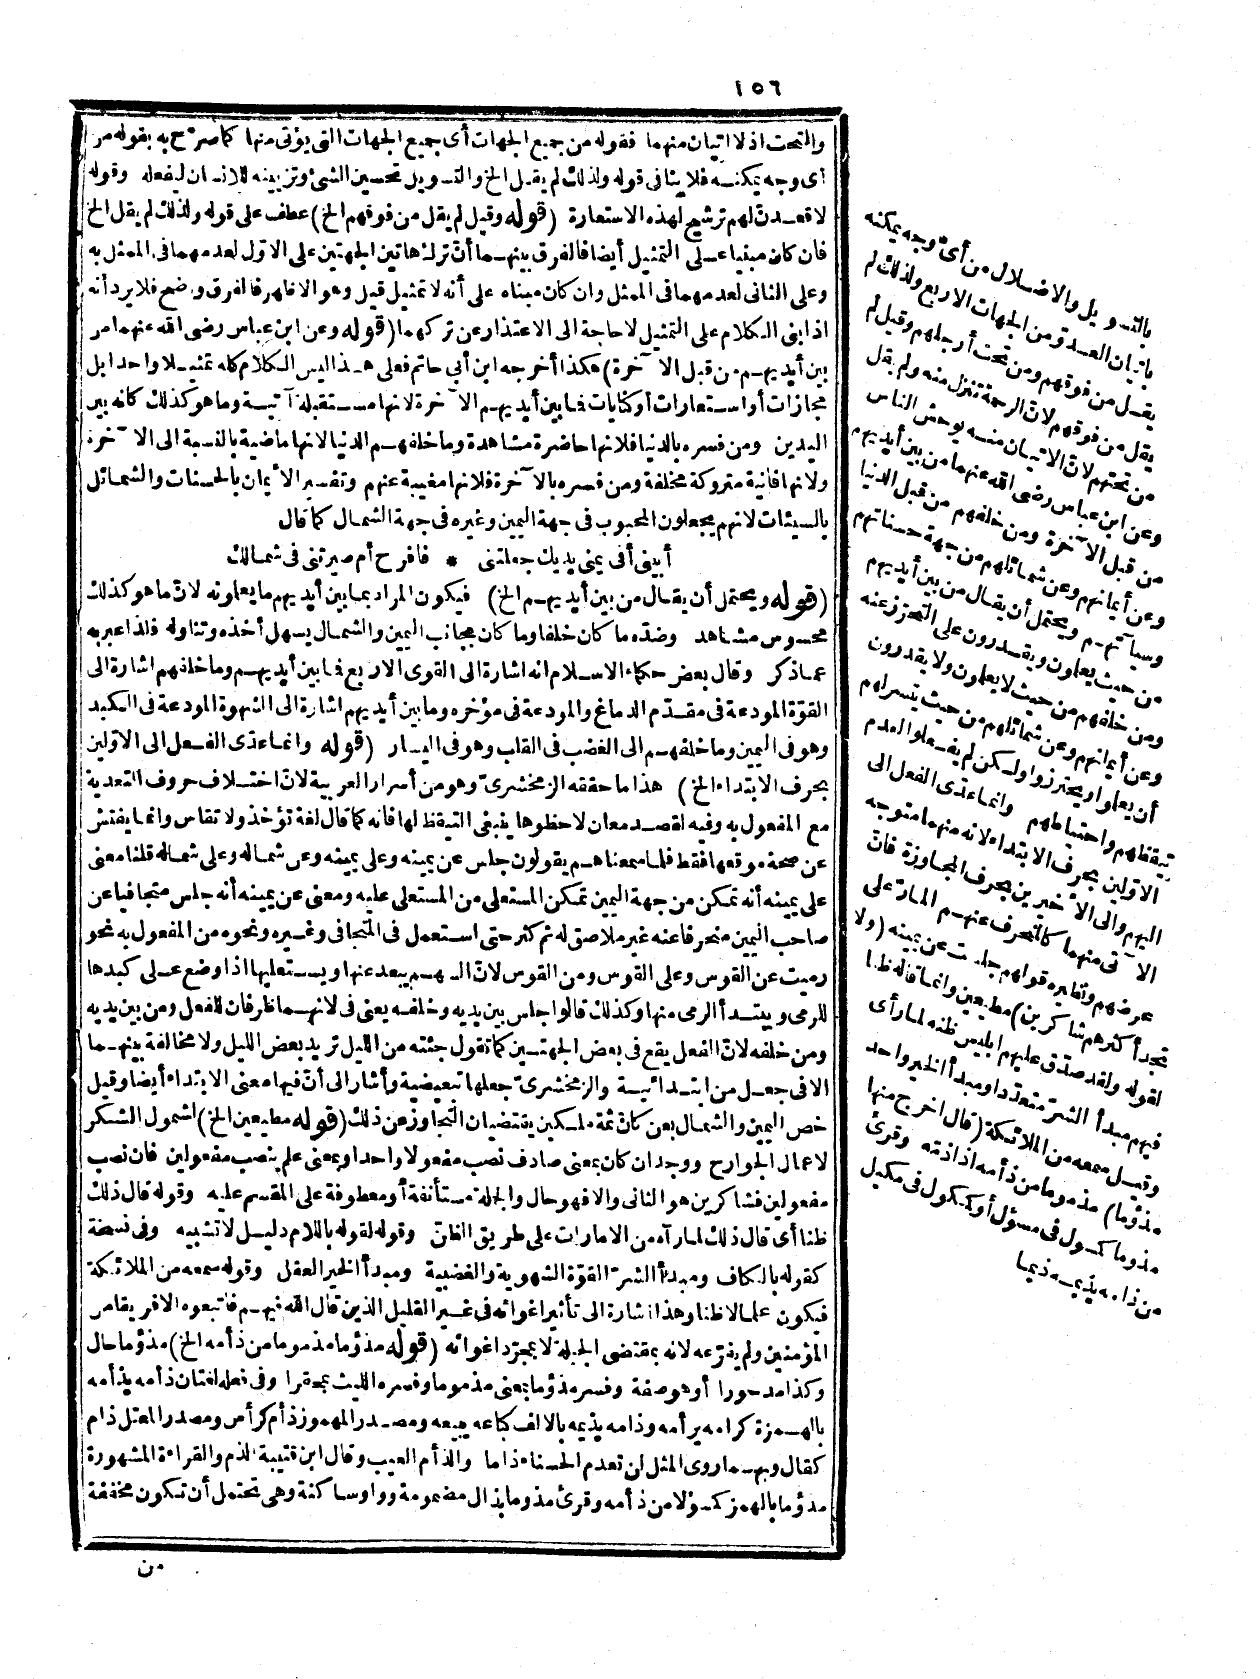 ١٥٦
والتحت اذ لا اتيان منهما فقوله من جميع الجهات أى جميع الجهات التى يؤتى منها كما صرّح به بقوله من
أى وجه يمكنه فلا ينافى قوله ولذلك لم يقل الخ والتسويل تحسين الشئ وتزيينه للانسان ليفعله وقوله
لاقعدنّ لهم ترشيح لهذه الاستعارة (قوله وقيل لم يقل من فوقهم الخ) عطف على قوله ولذلك لم يقل الخ
فان كان مبنيا على التمثيل أيضا فالفرق بينهما أنّ ترك هاتين الجهتين على الاوّل لعدمهما فى الممثل به
وعلى الثانى لعدمهما فى الممثل وان كان مبناه على أنه لا تمثيل قيل وهو الاظهر فالفرق واضح فلا يرد أنه
اذا بنى الكلام على التمثيل لا حاجة الى الاعتذار عن تركهما (قوله وعن ابن عباس رضى الله عنهما من
بين أيديهم من قبل الآخرة) هكذا أخرجه ابن أبى حاتم فعلى هذا ليس الكلام كله تمثيلا واحدا بل
مجازات أو استعارات أو كنايات فما بين أيديهم الآخرة لانها مستقبلة آتية وما هو كذلك كانه بين
اليدين ومن فسره بالدنيا فلانها حاضرة مشاهدة وما خلفهم الدنيا لانها ماضية بالنسبة الى الآخرة
ولانها فانية متروكة مخلفة ومن فسره بالآخرة فلانها مغيبة عنهم وتفسير الأيمان بالحسنات والشمائل
بالسيئات لانهم يجعلون المحبوب فى جهة اليمين وغيره فى جهة الشمال كما قال
أبينى أفى يمنى يديك جعلتنى * فافرح أم صيرتنى فى شمالك
(قوله ويحتمل أن يقال من بين أيديهم الخ) فيكون المراد بما بين أيديهم ما يعلونه لانّ ما هو كذلك
محسوس مشاهد وضدّه ما كان خلفا وما كان بجانب اليمين والشمال يسهل أخذه وتناوله فلذا عبر به
عما ذكر وقال بعض حكماء الاسلام انه اشارة الى القوى الاربع فما بين أيديهم وما خلفهم اشارة الى
القوّة المودعة فى مقدّم الدماغ والمودعة فى مؤخره وما بين أيديهم اشارة الى الشهوة المودعة فى الكبد
وهو فى اليمين وما خلفهم الى الغضب فى القلب وهو فى اليسار (قوله وانما عدّى الفعل الى الاوّلين
بحرف الابتداء الخ) هذا ما حققه الزمخشرىّ وهو من أسرار العربية لانّ اختلاف حروف التعدية
مع المفعول به وفيه لقصد معان لاحظوها ينبغى التيقظ لها فانه كما قال لغة تؤخذ ولا تقاس وانما يفتش
عن صحة موقعها فقط فلما سمعناهم يقولون جلس عن يمينه وعلى يمينه وعن شماله وعلى شماله قلنا معنى
على يمينه أنه تمكن من جهة اليمين تمكن المستعلى من المستعلى عليه ومعنى عن يمينه أنه جلس متجافيا عن
صاحب اليمين منحرفا عنه غير ملاصق له ثم كثر حتى استعمل فى المتجافى وغيره ونحوه من المفعول به نحو
رميت عن القوس وعلى القوس ومن القوس لانّ السهم يبعد عنها ويستعليها اذا وضع على كبدها
للرمى ويبتدأ الرمى منها وكذلك قالوا جلس بين يديه وخلفه يعنى فى لانهما ظرفان للفعل ومن بين يديه
ومن خلفه لانّ الفعل يقع فى بعض الجهتين كما تقول جئته من الليل تريد بعض الليل ولا مخالفة بينهما
الا فى جعل من ابتدائية والزمخشرىّ جعلها تبعيضية وأشار الى أنّ فيها معنى الابتداء أيضا وقيل
خص اليمين والشمال بعن كأن ثمة ملكين يقتضيان التجاوز عن ذلك (قوله مطيعين الخ) لشمول الشكر
لاعمال الجوارح ووجد ان كان بمعنى صادف نصب مفعولا واحدا وبمعنى علم ينصب مفعولين فان نصب
مفعولين فشاكرين هو الثانى والا فهو حال والجملة مستأنفة أو معطوفة على المقسم عليه وقوله قال ذلك
ظنا أى قال ذلك لما رآه من الامارات على طريق الظنّ وقوله لقوله باللام دليل لا تشبيه وفى نسخة
كقوله بالكاف ومبدأ الشرّ القوّة الشهوية والغضبية ومبدأ الخير العقل وقوله سمعه من الملائكة
فيكون علما لا ظنا وهذا اشارة الى تأثير اغوائه فى غير القليل الذين قال الله فيهم فاتبعوه الا فريقا من
المؤمنين ولم يفرّعه لانه بمقتضى الجبلة لا بمجرّد اغوائه (قوله مذؤما مذموما من ذأمه الخ) مذؤما حال
وكذا مدحورا أو هو صفة وفسر مذؤما بمعنى مذموما وفسره الليث بمحقرا وفى فعله لغتان ذأمه يذأمه
بالهمزة كرامه يرأمه وذامه يذيمه بالالف كباعه يبيعه ومصدر المهموز ذأم كرأس ومصدر المعتل ذام
كقال وبهما روى المثل لن تعدم الحسناء ذاما والذأم العيب وقال ابن قتيبة الذم والقراءة المشهورة
مذؤما بالهمز كمسؤلا من ذأمه وقرئ مذوما بذال مضمومة وواو ساكنة وهى تحتمل أن تكون مخففة
من
بالتسويل والاضلال من أىّ وجه يمكنه
باتيان العدوّ من الجهات الاربع ولذلك لم
يقل من فوقهم ومن تحت أرجلهم وقيل لم
يقل من فوقهم لانّ الرحمة تنزل منه ولم يقل
من تحتهم لانّ الاتيان منه يوحش الناس
وعن ابن عباس رضى الله عنهما من بين أيديهم
من قبل الآخرة ومن خلفهم من قبل الدنيا
وعن أيمانهم وعن شمائلهم من جهة حسناتهم
وسيآتهم ويحتمل أن يقال من بين أيديهم
من حيث يعلمون ويقدرون على التحرز عنه
ومن خلفهم من حيث لا يعلمون ولا يقدرون
وعن أيمانهم وعن شمائلهم من حيث يتيسر لهم
أن يعلموا ويحترزوا ولكن لم يفعلوا لعدم
تيقظهم واحتياطهم وانما عدّى الفعل الى
الاوّلين بحرف الابتداء لانه منهما متوجه
اليهم والى الأخيرين بحرف المجاوزة فانّ
الآتى منهما كالمنحرف عنهم المارّ على
عرضهم ونظيره قولهم جلست عن يمينه (ولا
تجد أكثرهم شاكرين) مطيعين وانما قاله ظنا
لقوله ولقد صدّق عليهم ابليس ظنه لما رأى
فيهم مبدأ الشرّ متعددا ومبدأ الخير واحد
وقيل سمعه من الملائكة (قال اخرج منها
مذؤما) مذموما من ذأمه اذا ذمّه وقرئ
مذوما كمسول فى مسؤل أو ككول فى مكيل
من ذامه يذيمه ذيما